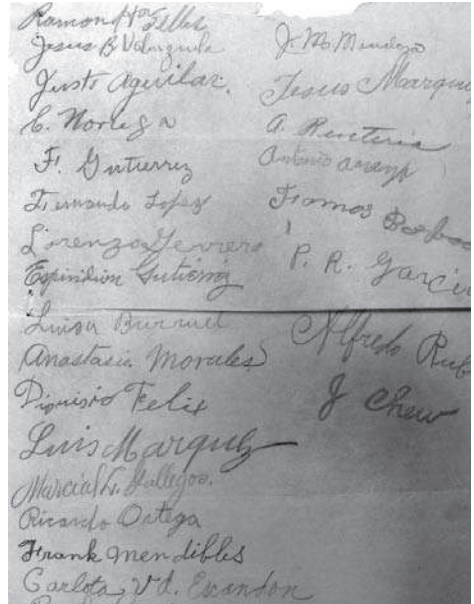 Ramon Tellez
Jesus B Valenzuela
Justo Aguilar.
C. Noriega
F. Gutierrez
Fernando Lopez
Lorenzo Gerrero
Espiridion Gutierrez
Luisa Burruel
Anastacio Morales
Dionisio Felix
Luis Marquez
Marcial L. Gallegos.
Ricardo Ortega
Frank Mendibles
Carlota Vd. Escandon
J. M. Mendoza
Jesus
A. Renteria
Antonio

P. R.
Alfredo
J Chew